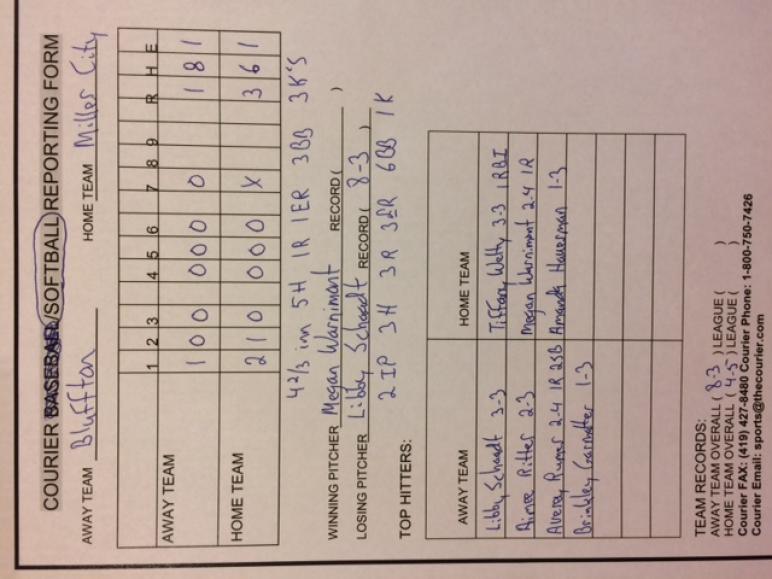 COURIER BASEBALL/SOFTBALL REPORTING FORM
AWAY TEAM Bluffton HOME TEAM Miller City
1 2 3 4 5 6 7 8 9 R H E
AWAY TEAM 1 0 0 0 0 0 0 1 8 1
HOME TEAM 2 1 0 0 0 0 X 3 6 1
4 2/3 inn 5H 1R 1ER 3BB 3K'S
WINNING PITCHER Megan Warnimont RECORD ( )
LOSING PITCHER Libby Schaadt RECORD ( 8-3 )
2 IP 3H 3R 3ER 6BB 1K
TOP HITTERS:
AWAY TEAM HOME TEAM
Libby Schaadt 3-3 Tiffany Welty 3-3 1RBI
Aimee Ritter 2-3 Megan Warnimont 2-4 1R
Averey Rumer 2-4 1R 2SB Amanda 1-3
Brinkley Garmatter 1-3
TEAM RECORDS:
AWAY TEAM OVERALL ( 8-3 ) LEAGUE ( )
HOME TEAM OVERALL ( 4-5 ) LEAGUE ( )
Courier FAX: (419) 427-8480 Courier Phone: 1-800-750-7426
Courier Email: sports@thecourier.com